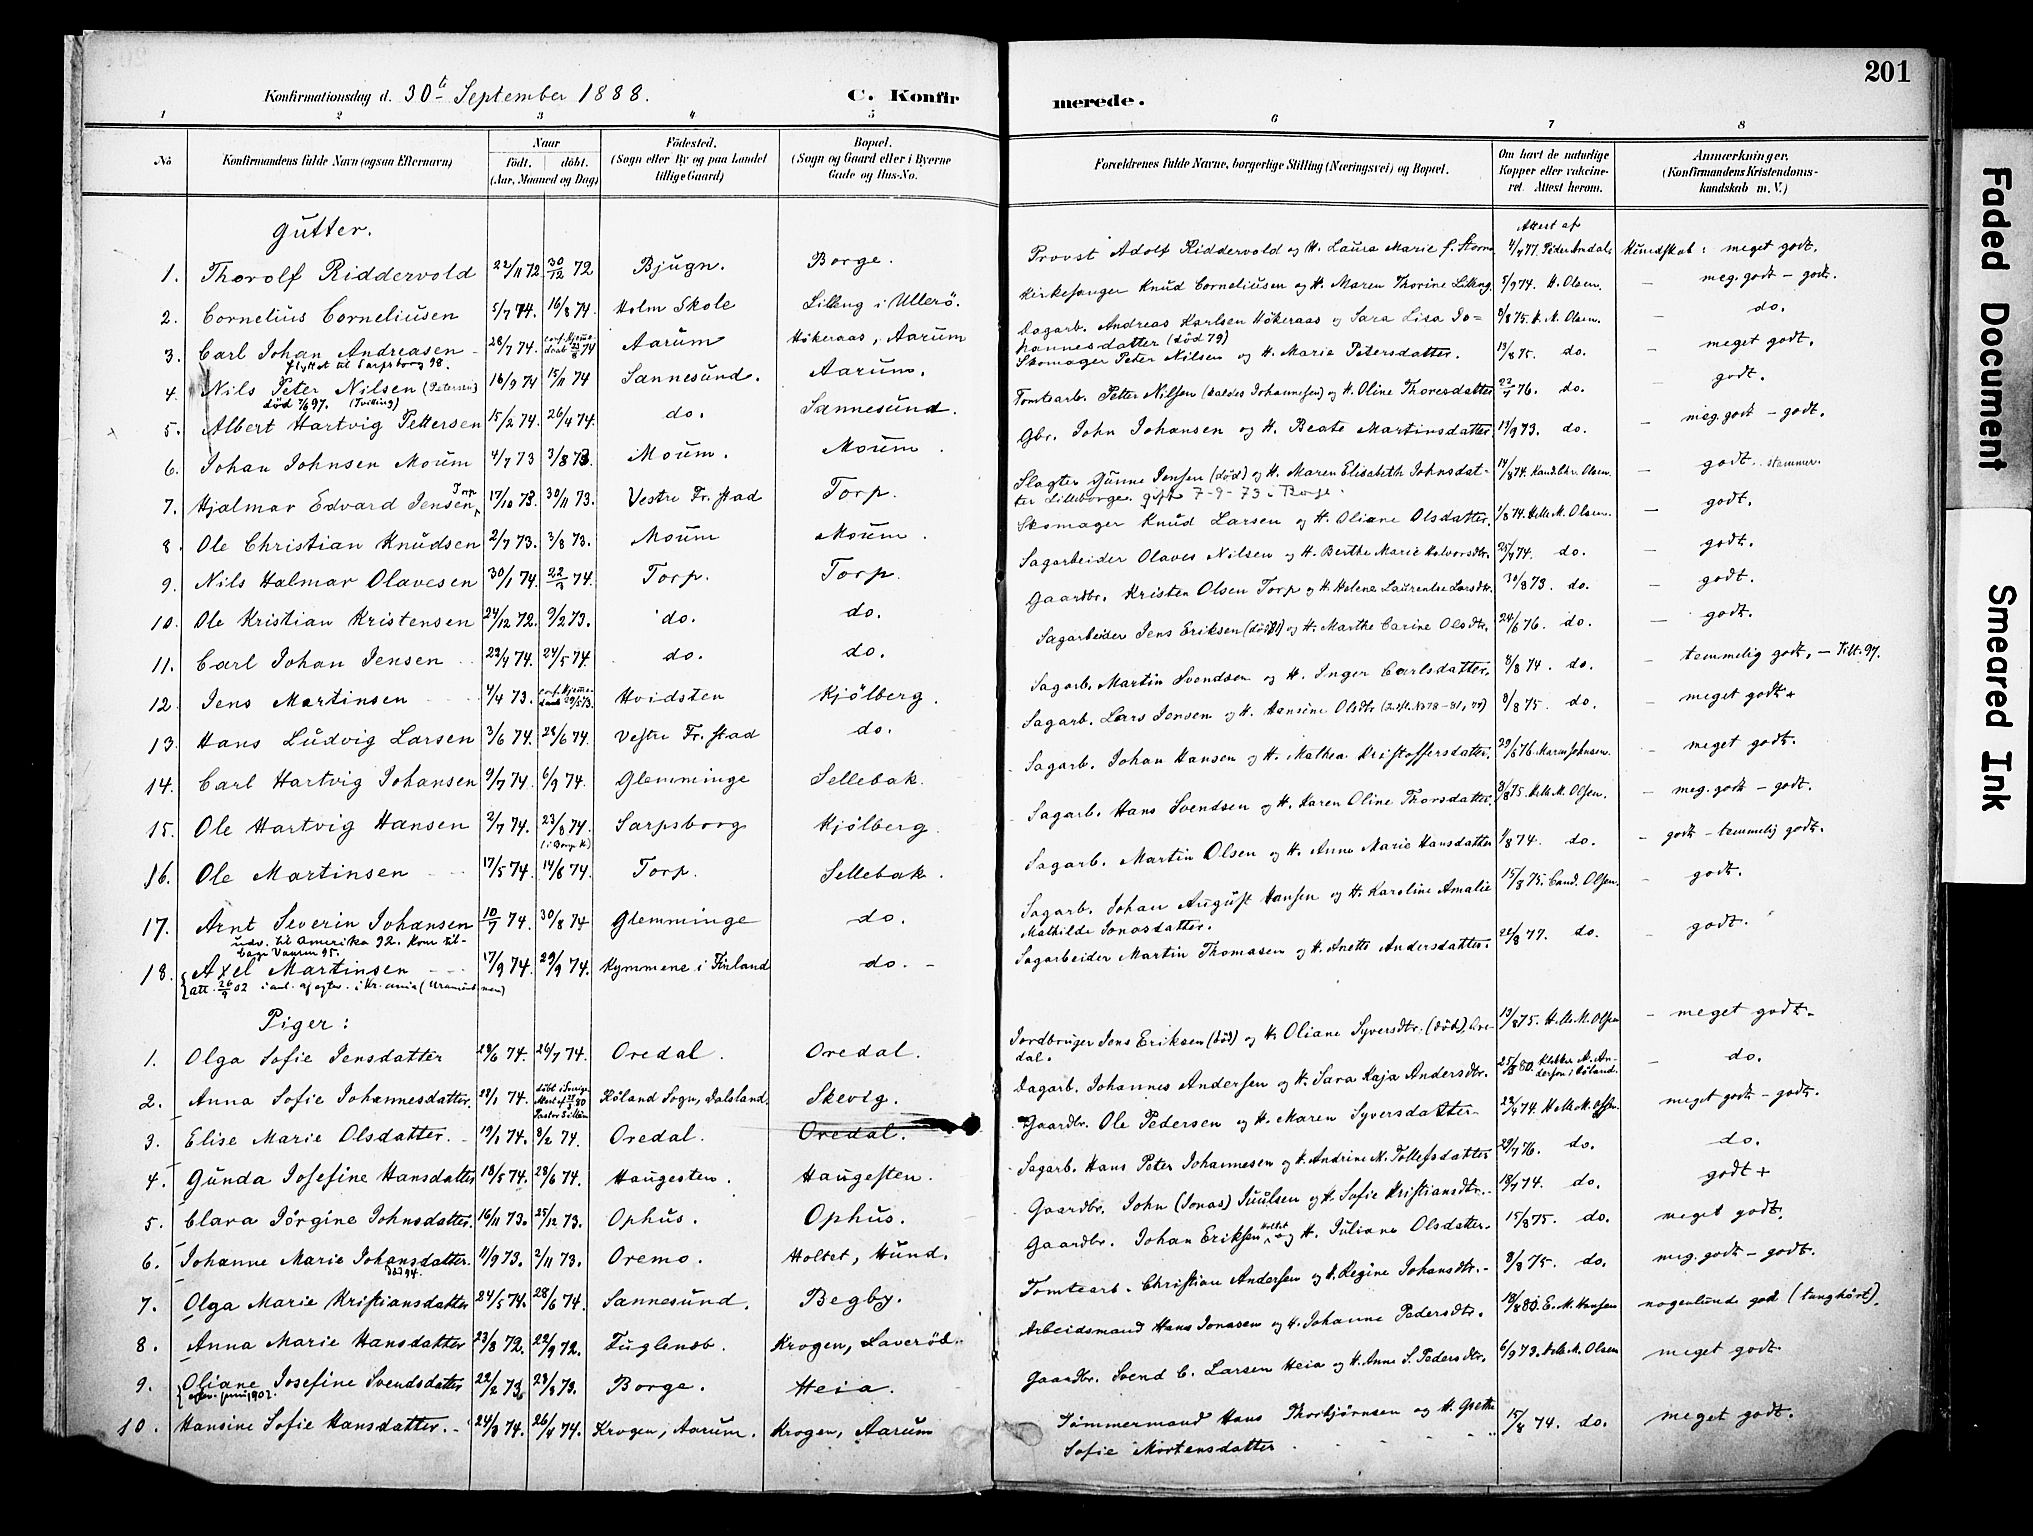 201
Konfirmationsdag d. 30te September 1888. C. Konfirmerede.
1 2 3 4 5 6 7 8
No Konfirmandens fulde Navn (ogsaa Efternavn) Naar født, døbt. (Aar, Maaned og Dag) Fødested. (Sogn eller By og paa Landet tillige Gaard) Bopæl. (Sogn og Gaard eller i Byerne Gade og Hus-No. Forældrenes fulde Navne, borgerlige Stilling (Næringsvei) og Bopæl. Om havt de naturlige Kopper eller vakcineret. Attest herom. Anmærkninger. (Konfirmandens Kristendomskundskab m. V.)
Gutter. Attest af
1. Thorolf Riddervold 22/11 72 30/12 72 Bjugn. Borge. Provst Adolf Riddervold og H. Laura Marie f. Storm 4/4 77. Peder Arndals Kundskab: meget godt.
2. Cornelius Corneliusen 5/7 74. 16/8 74. Holm Skole Lilleng i Ullerö. Kirkesanger Knud Corneliusen og H. Maren Thorine Lilleng. 5/9 74. H. Olsen. – meg. godt – godt.
3. Carl Johan Andreasen 28/7 74. Aarum Hökeraas, Aarum Dagarb. Andreas Karlsen Hökeraas og Sara Lisa Jo= 9/8 75. H. M. Olsen. – do.
flyttet til Sarpsborg 98. hannesdatter (död 79)
4. Nils Peter Nilsen (Petersen) 16/9 74 15/11 74 Sannesund. Aarum. Skomager Peter Nilsen og H. Marie Petersdatter. 13/8 75. do. – meget godt.
död 7/6 97. (Tvilling)
5. Albert Hartvig Pettersen 15/2 74. 26/4 74. do. Sannesund. Tomtearb. Petter Nilsen (kaldes Johannesen) og H. Oline Thoresdatter 22/7 76. do. godt.
6. Johan Johnsen Moum 4/7 73 3/8 73. Moum. Moum. Gbr. John Johansen og H. Beate Martinsdatter. 13/9 73. do. – meg. godt – godt.
7. Hjalmar Edvard Jensen Torp 17/10 73. 30/11 73. Vestre Fr.stad Torp. Slagter Gunne Jensen (död) og H. Maren Elisabeth Johnsdat- 14/8 74. Kand. Chr. Olsen. – godt. stammer.
ter Lilleborge. gift 7-9-73 i Borge.
8. Ole Christian Knudsen 2/7 73. 3/8 73. Moum Moum. Skomager Knud Larsen og H. Oliane Olsdatter. 1/8 74. H. M. Olsen. – godt.
9. Nils Halmar Olavesen 30/1 74. 22/3 74. Torp. Torp. Sagarbeider Olaves Nilsen og H. Berthe Marie Halvorsdtr. 25/9 74. do. – godt.
10. Ole Kristian Kristensen 24/12 72. 9/2 73. do. do. Gaardbr. Kristen Olsen Torp og H. Helene Laurentse Larsdtr. 30/8 73. do. – godt.
11. Carl Johan Jensen 22/4 74. 24/5 74. do. do. Sagarbeider Jens Eriksen (död) og H. Marthe Carine Olsdtr. 24/6 76. do. – godt.
12. Jens Martinsen 4/4 73. Hvidsten Kjölberg. Sagarb. Martin Svendsen og H. Inger Carlsdatter. 8/8 74. do. – temmelig godt, – Tilt. 97.
13. Hans Ludvig Larsen 3/6 74. 28/6 74. Vestre Fr.stad do. Sagarb. Lars Jensen og H. Hansine Olsdtr 9/8 75. do. – meget godt+
14. Carl Hartvig Johansen 9/7 74. 6/9 74. Glemminge Sellebak. Sagarb. Johan Hansen og H. Mathea Kristoffersdatter. 29/6 76. Maren Johnsen. – meget godt.
15. Ole Hartvig Hansen 2/7 74. 23/8 74. Sarpsborg Kjölberg. Sagarb. Hans Svendsen og H. Karen Oline Thorsdatter. 8/8 75. H. M. Olsen. – meg. godt – godt.
(i Borge K.)
16. Ole Martinsen 17/5 74. 14/6 74. Torp. Sellebak. Sagarb. Martin Olsen og H. Anne Marie Hansdatter 1/8 74. do. – godt – temmelig godt.
17. Arnt Severin Johansen 10/7 74. 30/8 74. Glemminge do. Sagarb. Johan August Hansen og H. Karoline Amalie 15/8 75. Cand. Olsen. – godt.
udv. til Amerika 92. Kom til- Mathilde Jonasdatter.
bage Vaaren 95.
18. Axel Martinsen 17/9 74. 29/9 74. Kymmene i Finland do. – Sagarbeider Martin Thomasen og H. Anette Andersdatter. 22/8 77. do. – godt.
att. 26/9 02
Piger:
1. Olga Sofie Jensdatter 28/6 74. 26/7 74. Oredal. Oredal. Jordbruger Jens Eriksen (död) og H. Oliane Syversdtr. (död), Ore- 13/8 75. H. M. Olsen – meget godt.
dal.
2. Anna Sofie Johannesdatter. 28/1 74. döbt i Sverige Köland Sogn, Dalsland. Skevig. Dagarb. Johannes Andersen og H. Sara Kaja Andersdtr. 25/8 80. Klokker A. Andersen i Köland. – do.
3. Elise Marie Olsdatter. 19/1 74. 8/2 74. Oredal. Oredal. Gaardbr. Ole Pedersen og H. Maren Syversdatter. 22/4 74. H. M. Olsen. meget godt – godt.
4. Gunda Josefine Hansdatter 18/5 74. 28/6 74. Haugesten. Haugesten. Sagarb. Hans Peter Johannesen og H. Andrine N. Tollefsdatter 29/7 76. do. do.
5. Clara Jörgine Johnsdatter. 16/11 73. 25/12 73. Ophus. Ophus. Gaardbr. John (Jonas) Juulsen og H. Sofie Kristiansdtr. 18/7 74. do. godt +
6. Johanne Marie Johansdatter. 11/9 73. 2/11 73. Oremo. Holtet, Hund. Gaardbr. Johan Eriksen Holtet og H. Juliane Olsdatter. 15/8 75. do. meget godt.
död 94.
7. Olga Marie Kristiansdatter 24/5 74. 28/6 74. Sannesund. Begby. Tomtearb. Christian Andersen og H. Regine Johansdtr. 8/8 75. do. meg. godt – godt.
8. Anna Marie Hansdatter 23/8 72. 22/9 72. Fuglensb. Krogen, Laveröd. Arbeidsmand Hans Jonasen og H. Johanne Pedersdtr. 18/8 80. E. M. Hansen nogenlunde god (tunghört).
9. Oliane Josefine Svendsdatter 22/2 73. 23/3 73. Borge. Heia. Gaardbr. Svend C. Larsen Heia og H. Anne S. Pedersdtr. 6/9 73. H. M. Olsen meget godt
10. Hansine Sofie Hansdatter. 24/3 74. 26/4 74. Krogen, Aarum. Krogen, Aarum Tömmermand Hans Thorbjörnsen og H. Grethe 15/8 74. do. meget godt.
Sofie Mortensdatter
Faded Document
Smeared Ink